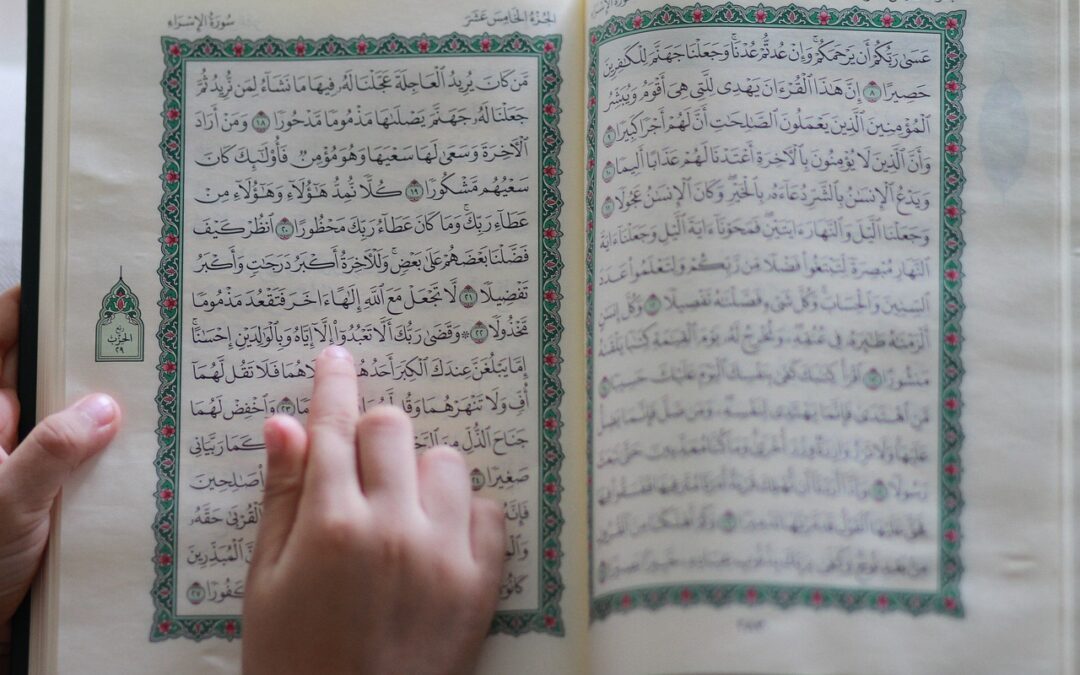 عَسَىٰ رَبُّكُمْ أَن يَرْحَمَكُمْ ۚ وَإِنْ عُدتُّمْ عُدْنَا ۘ وَجَعَلْنَا جَهَنَّمَ لِلْكَٰفِرِينَ
حَصِيرًا ٨ إِنَّ هَٰذَا ٱلْقُرْءَانَ يَهْدِى لِلَّتِى هِىَ أَقْوَمُ وَيُبَشِّرُ
ٱلْمُؤْمِنِينَ ٱلَّذِينَ يَعْمَلُونَ ٱلصَّٰلِحَٰتِ أَنَّ لَهُمْ أَجْرًا كَبِيرًا ٩
وَأَنَّ ٱلَّذِينَ لَا يُؤْمِنُونَ بِٱلْءَاخِرَةِ أَعْتَدْنَا لَهُمْ عَذَابًا أَلِيمًا ١٠
وَيَدْعُ ٱلْإِنسَٰنُ بِٱلشَّرِّ دُعَآءَهُۥ بِٱلْخَيْرِ ۖ وَكَانَ ٱلْإِنسَٰنُ عَجُولًا ١١
وَجَعَلْنَا ٱلَّيْلَ وَٱلنَّهَارَ ءَايَتَيْنِ ۖ فَمَحَوْنَآ ءَايَةَ ٱلَّيْلِ وَجَعَلْنَآ ءَايَةَ
ٱلنَّهَارِ مُبْصِرَةً لِّتَبْتَغُوا۟ فَضْلًا مِّن رَّبِّكُمْ وَلِتَعْلَمُوا۟ عَدَدَ
ٱلسِّنِينَ وَٱلْحِسَابَ ۚ وَكُلَّ شَىْءٍ فَصَّلْنَٰهُ تَفْصِيلًا ١٢ وَكُلَّ إِنسَٰنٍ
أَلْزَمْنَٰهُ طَٰٓئِرَهُۥ فِى عُنُقِهِۦ ۖ وَنُخْرِجُ لَهُۥ يَوْمَ ٱلْقِيَٰمَةِ كِتَٰبًا يَلْقَىٰهُ
مَنشُورًا ١٣ ٱقْرَأْ كِتَٰبَكَ كَفَىٰ بِنَفْسِكَ ٱلْيَوْمَ عَلَيْكَ حَسِيبًا ١٤
مَّنِ ٱهْتَدَىٰ فَإِنَّمَا يَهْتَدِى لِنَفْسِهِۦ ۖ وَمَن ضَلَّ فَإِنَّمَا يَضِلُّ
عَلَيْهَا ۚ وَلَا تَزِرُ وَازِرَةٌ وِزْرَ أُخْرَىٰ ۗ وَمَا كُنَّا مُعَذِّبِينَ حَتَّىٰ نَبْعَثَ
رَسُولًا ١٥ وَإِذَآ أَرَدْنَآ أَن نُّهْلِكَ قَرْيَةً أَمَرْنَا مُتْرَفِيهَا فَفَسَقُوا۟ فِيهَا
فَحَقَّ عَلَيْهَا ٱلْقَوْلُ فَدَمَّرْنَٰهَا تَدْمِيرًا ١٦ وَكَمْ أَهْلَكْنَا مِنَ ٱلْقُرُونِ
مِنۢ بَعْدِ نُوحٍ ۗ وَكَفَىٰ بِرَبِّكَ بِذُنُوبِ عِبَادِهِۦ خَبِيرًۢا بَصِيرًا ١٧
الجُزْءُ الخَامِسَ عَشَرَ
سُورَةُ الإِسْرَاءِ
مَّن كَانَ يُرِيدُ ٱلْعَاجِلَةَ عَجَّلْنَا لَهُۥ فِيهَا مَا نَشَآءُ لِمَن نُّرِيدُ ثُمَّ
جَعَلْنَا لَهُۥ جَهَنَّمَ يَصْلَىٰهَا مَذْمُومًا مَّدْحُورًا ١٨ وَمَنْ أَرَادَ
ٱلْءَاخِرَةَ وَسَعَىٰ لَهَا سَعْيَهَا وَهُوَ مُؤْمِنٌ فَأُو۟لَٰٓئِكَ كَانَ
سَعْيُهُم مَّشْكُورًا ١٩ كُلًّا نُّمِدُّ هَٰٓؤُلَآءِ وَهَٰٓؤُلَآءِ مِنْ
عَطَآءِ رَبِّكَ ۚ وَمَا كَانَ عَطَآءُ رَبِّكَ مَحْظُورًا ٢٠ ٱنظُرْ كَيْفَ
فَضَّلْنَا بَعْضَهُمْ عَلَىٰ بَعْضٍ ۚ وَلَلْءَاخِرَةُ أَكْبَرُ دَرَجَٰتٍ وَأَكْبَرُ
تَفْضِيلًا ٢١ لَّا تَجْعَلْ مَعَ ٱللَّهِ إِلَٰهًا ءَاخَرَ فَتَقْعُدَ مَذْمُومًا
مَّخْذُولًا ٢٢ ۞ وَقَضَىٰ رَبُّكَ أَلَّا تَعْبُدُوٓا۟ إِلَّآ إِيَّاهُ وَبِٱلْوَٰلِدَيْنِ إِحْسَٰنًا ۚ
إِمَّا يَبْلُغَنَّ عِندَكَ ٱلْكِبَرَ أَحَدُهُمَآ فَلَا تَقُل لَّهُمَآ
أُفٍّ وَلَا تَنْهَرْهُمَا وَقُل ٢٣ وَٱخْفِضْ لَهُمَا
جَنَاحَ ٱلذُّلِّ مِنَ كَمَا رَبَّيَانِى
صَغِيرًا ٢٤ صَٰلِحِينَ
فَإِنَّهُۥ ٱلْقُرْبَىٰ حَقَّهُۥ
ٱلْمُبَذِّرِينَ
كَانُوٓا۟ كَفُورًا ٢٧
رُبْعُ
الحِزْبِ
٢٩